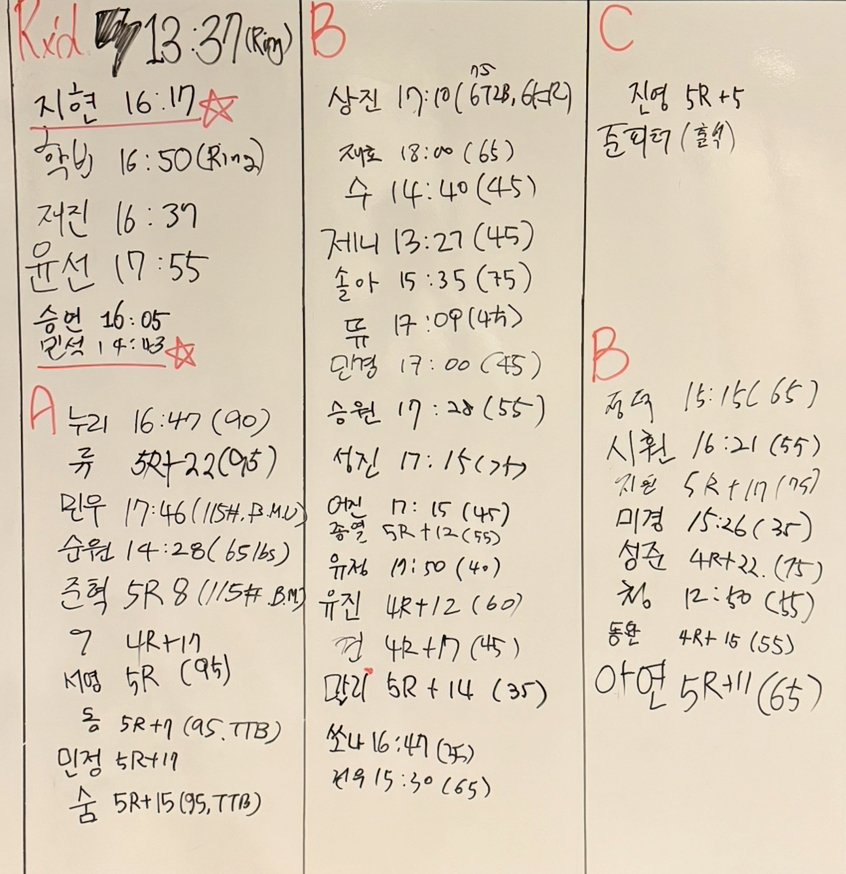 Rx'd 13:37 (Ring)
지현 16:17
16:50 (Ring)
저진 16:37
윤선 17:55
승언 16:05
민석 14:43
A
누리 16:47 (90)
류 5R+22 (95)
민우 17:46 (115#, B.M.U)
순원 14:28 (65lbs)
준혁 5R 8 (115#, B.M)
4R+17
서영 5R (95)
동 5R+7 (95, TTB)
민정 5R+17
숨 5R+15 (95, TTB)
B
상진 17:10 (
재호 18:00 (65)
수 14:40 (45)
제니 13:27 (45)
솔아 15:35 (75)
뜌 17:09
민경 17:00 (45)
승원 17:28 (55)
성진 17:15
어진 17:15 (45)
종열 5R+12 (55)
유정 17:50 (40)
유진 4R+12 (60)
건 4R+17 (45)
말리 5R+14 (35)
쏘나 16:47 (35)
15:30 (65)
C
진영 5R+5
준피터 (출석)
B
15:15 (65)
시훤 16:21 (55)
지원 5R+17 (75)
미경 15:26 (35)
성준 4R+22. (75)
청 12:50 (55)
동완 4R+15 (55)
아연 5R+11 (65)